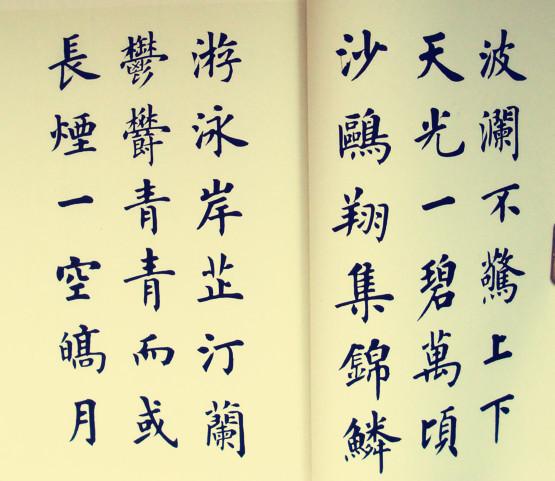 波瀾不驚上下
天光一碧萬頃
沙鷗翔集錦鱗
游泳岸芷汀蘭
鬱鬱青青而或
長煙一空皜月